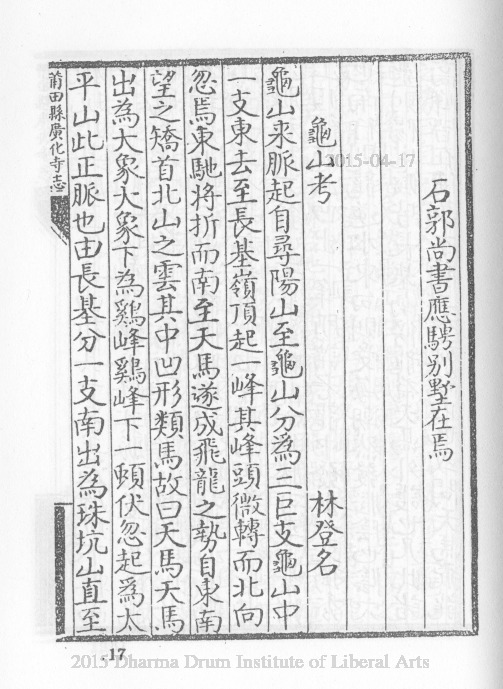 石郭尚書應騁別墅在焉
龜山考
林登名
龜山來脈起自尋陽山至龜山分為三巨支龜山中
一支東去至長基嶺頂起一峰其峰頭微轉而北向
忽焉東馳將折而南至天馬遂成飛龍之勢自東南
望之矯首北山之雲其中凹形類馬故曰天馬天馬
出為大象大象下為鷄峰鷄峰下一頓伏忽起為太
平山此正脈也由長基分一支南出為珠坑山直至
莆田縣廣化寺志
17
2015-04-17
2015 Dharma Drum Institute of Liberal Arts